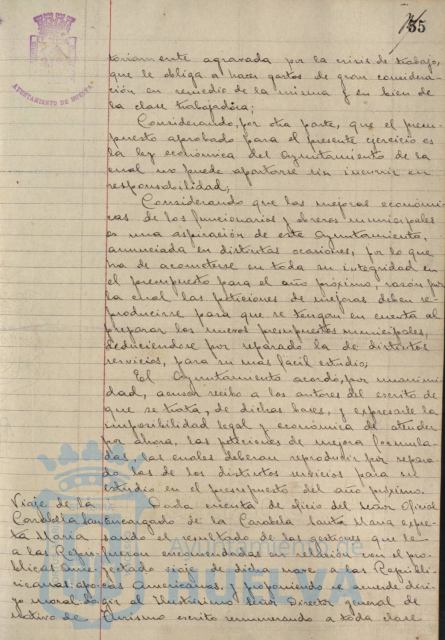 55
AYUNTAMIENTO DE HUELVA
toriamente agravada por la crisis de trabajo,
que le obliga a hacer gastos de gran considera-
ción en remedio de la misma y en bien de
la clase trabajadora;
Considerando, por otra parte, que el presu-
puesto aprobado para el presente ejercicio es
la ley económica del Ayuntamiento de la
cual no puede apartarse sin incurrir en
responsabilidad;
Considerando que las mejoras económi-
cas de los funcionarios y obreros municipales
es una aspiración de este Ayuntamiento,
anunciada en distintas ocasiones, por lo que
ha de acometerse en toda su integridad en
el presupuesto para el año próximo, razón por
la cual las peticiones de mejoras deben re-
producirse para que se tengan en cuenta al
preparar los nuevos presupuestos municipales,
deduciéndose por separado la de distintos
servicios, para su más fácil estudio;
El Ayuntamiento acordó, por unanimi-
dad, acusar recibo a los autores del escrito de
que se trata, de dichas bases, y expresarle la
imposibilidad legal y económica de atender
por ahora, las peticiones de mejora formula-
das, las cuales deberán reproducir por separa-
do las de los distintos servicios para su
estudio en el presupuesto del año próximo.
Viaje de la
Carabela San-
ta María
a las Repu-
blicas Ame-
ricanas: apo-
yo moral
motivo de
Dada cuenta de oficio del señor Oficial
encargado de la Carabela Santa María expre-
sando el resultado de las gestiones que le
fueron encomendadas en relación con el pro-
yectado viaje de dicha nave a las Repúbli-
cas Americanas, y proponiendo se acuerde diri-
gir al Ilustrísimo Señor Director general de
Turismo escrito remunerando a toda clase
AYUNTAMIENTO DE
HUELVA